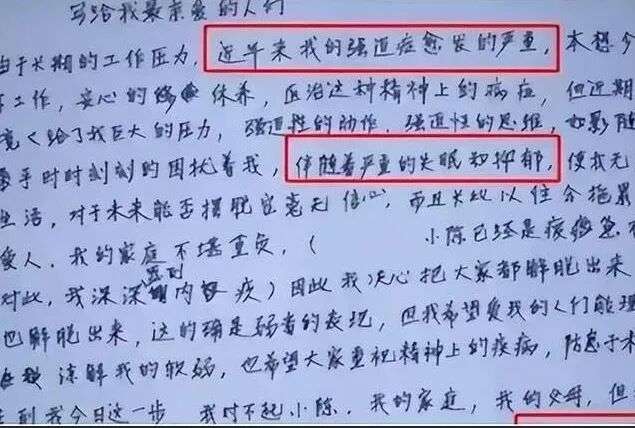 写给我最亲爱的人们
由于长期的工作压力,近年来我的强迫症愈发的严重,本想今
工作,安心的休养,医治这种精神上的病症,但近期
境给了我巨大的压力,强迫性的动作,强迫性的思维,如影随
乎时时刻刻的困扰着我,伴随着严重的失眠和抑郁,使我无
生活,对于未来能否摆脱它毫无信心,而且长此以往会拖累
爱人,我的家庭不堪重负,( 小陈已经是疲惫
对此,我深深感到内疚)因此我决心把大家都解脱出来
也解脱出来,这的确是弱者的表现,但我希望爱我的人们能理
谅解我的软弱,也希望大家重视精神上的疾病,防患于未
到我今日这一步 我对不起小陈,我的家庭,我的父母,但